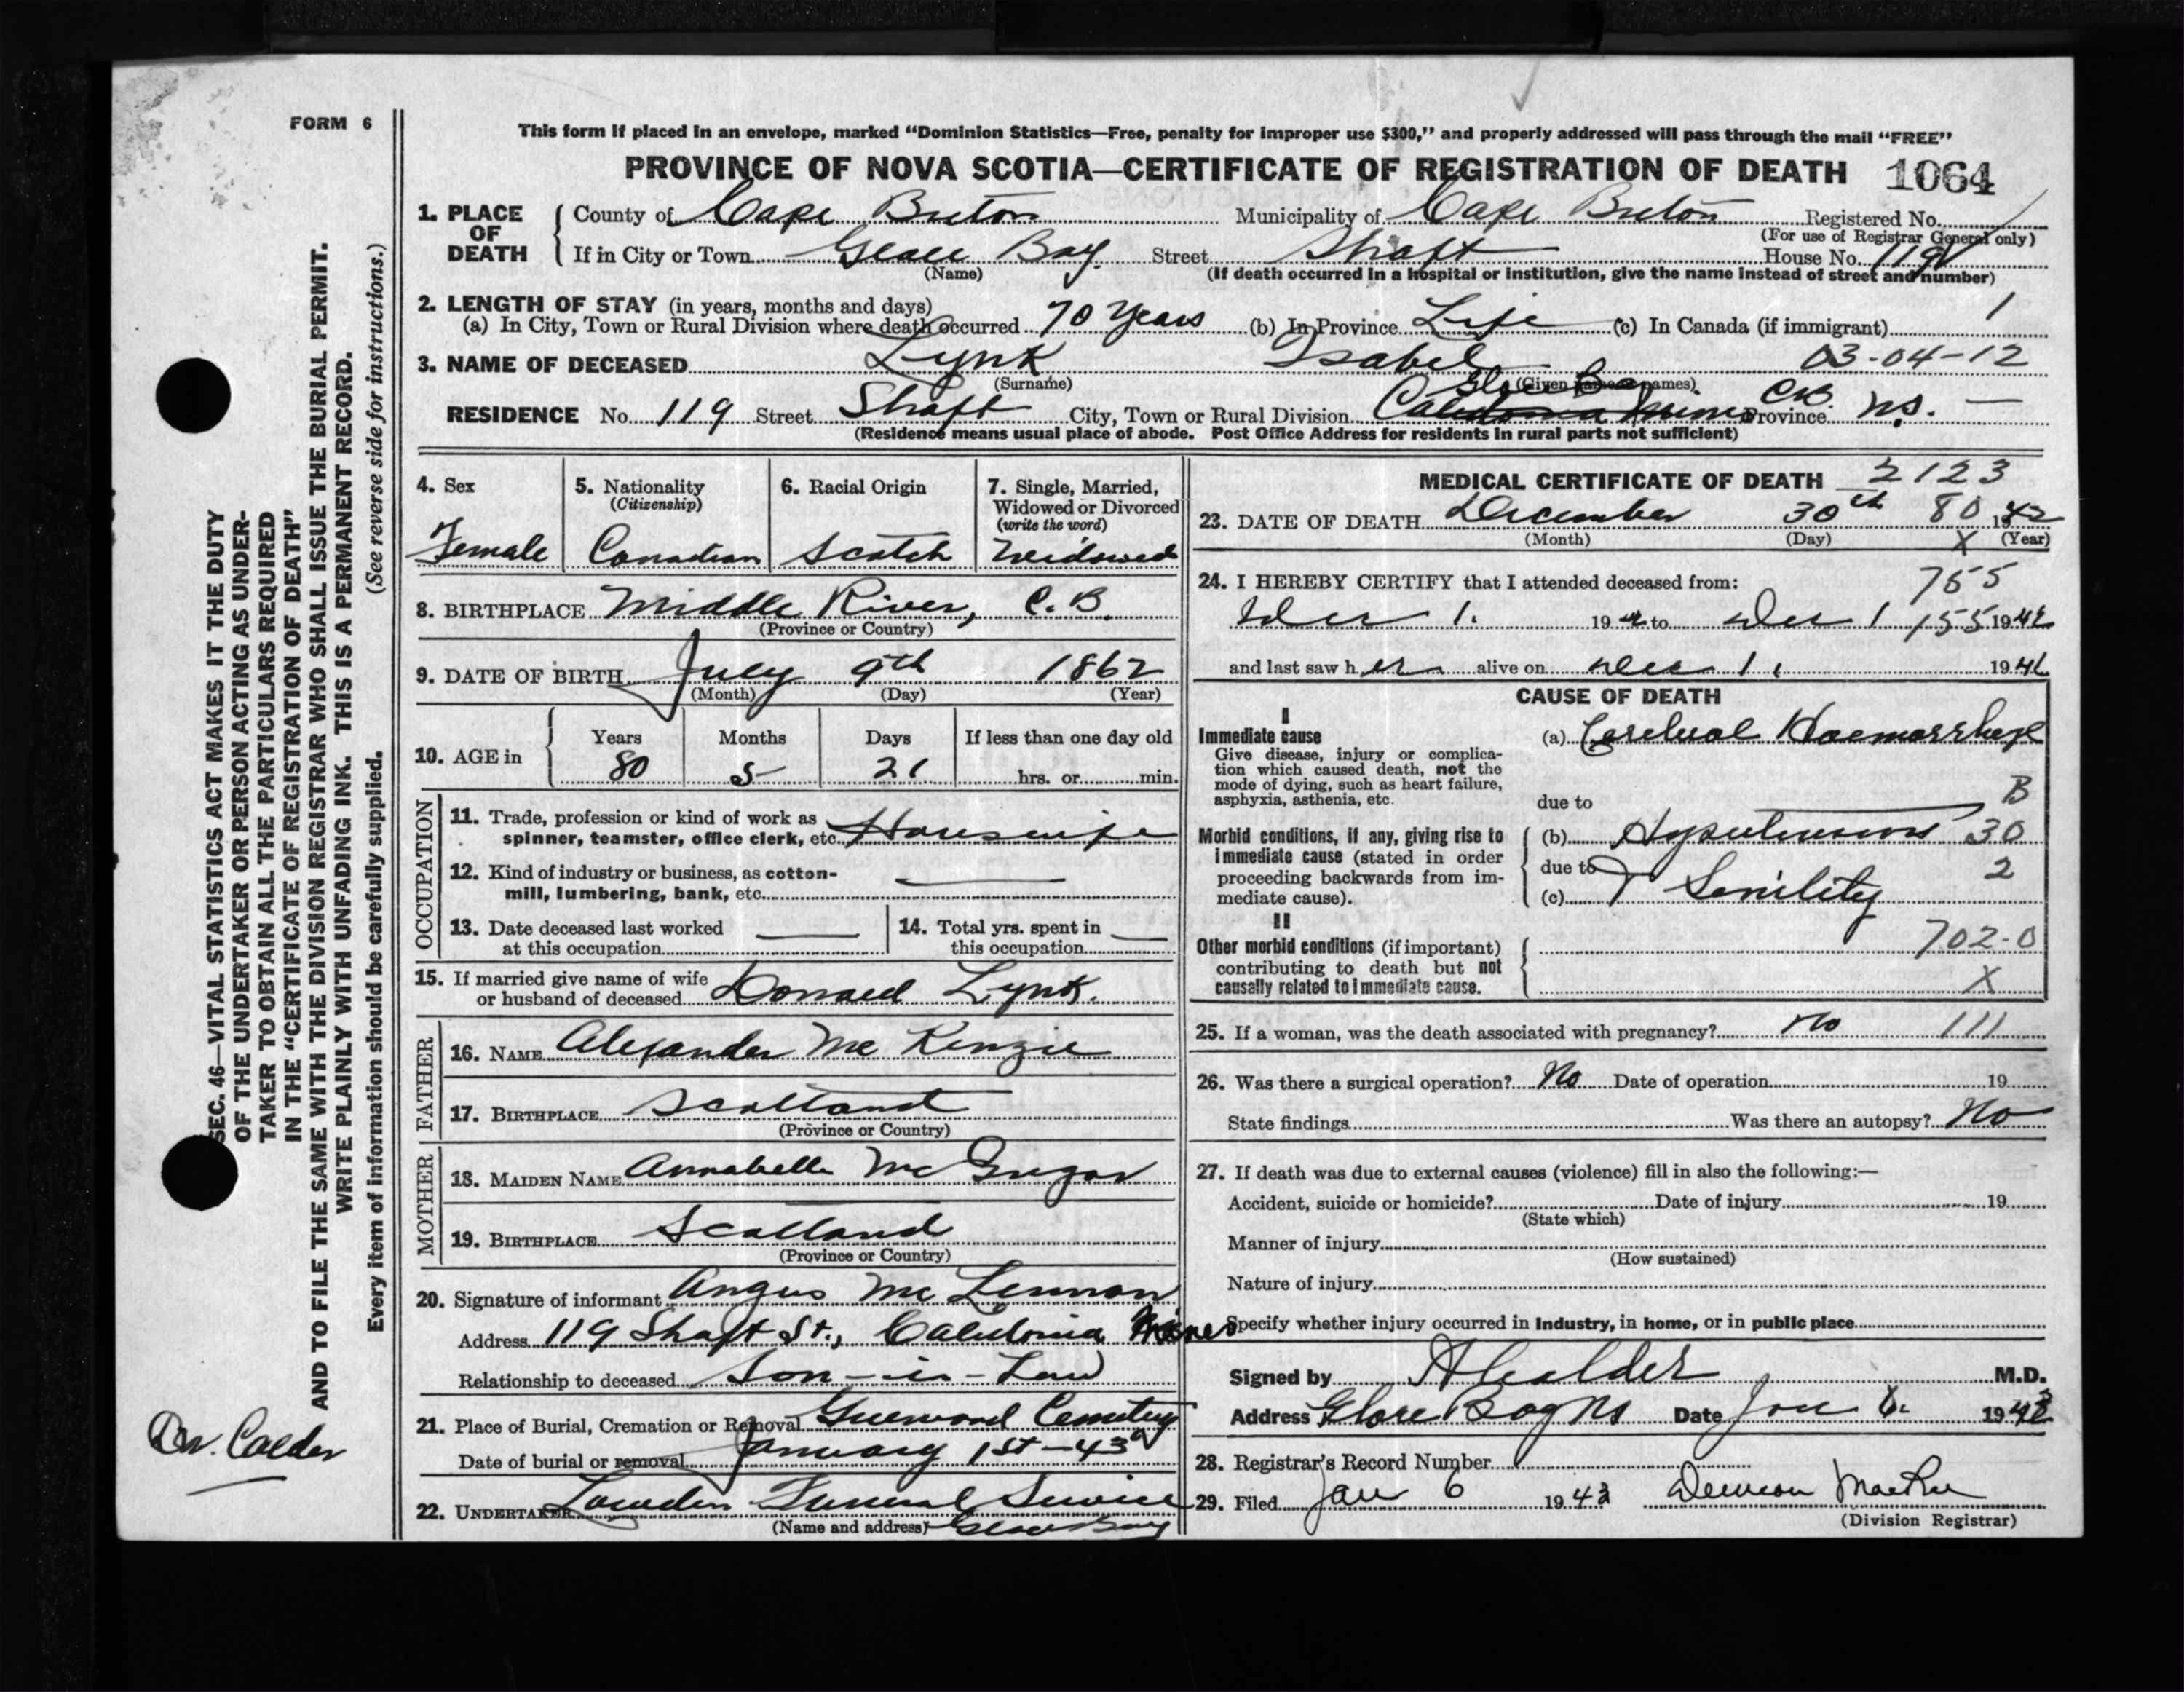 FORM 6
This form if placed in an envelope, marked "Dominion Statistics—Free, penalty for improper use $300," and properly addressed will pass through the mail "FREE"
PROVINCE OF NOVA SCOTIA—CERTIFICATE OF REGISTRATION OF DEATH 1064
1. PLACE OF DEATH County of Cape Breton Municipality of Cape Breton Registered No.
(For use of Registrar General only)
If in City or Town Glace Bay Street Shaft House No. 119
(Name) (If death occurred in a hospital or institution, give the name instead of street and number)
2. LENGTH OF STAY (in years, months and days)
(a) In City, Town or Rural Division where death occurred 70 Years (b) In Province Life (c) In Canada (if immigrant) 1
3. NAME OF DECEASED Lynk Isabel 03-04-12
(Surname) (Given name or names)
RESIDENCE No. 119 Street Shaft City, Town or Rural Division Glace Bay Caledonia Mines C.B. Province N.S. —
(Residence means usual place of abode. Post Office Address for residents in rural parts not sufficient)
4. Sex Female
5. Nationality (Citizenship) Canadian
6. Racial Origin Scotch
7. Single, Married, Widowed or Divorced (write the word) Widowed
8. BIRTHPLACE Middle River, C.B.
(Province or Country)
9. DATE OF BIRTH July 9th 1862
(Month) (Day) (Year)
10. AGE in Years Months Days If less than one day old
80 5 21 hrs. or min.
OCCUPATION
11. Trade, profession or kind of work as
spinner, teamster, office clerk, etc. Housewife
12. Kind of industry or business, as cotton-
mill, lumbering, bank, etc. —
13. Date deceased last worked
at this occupation —
14. Total yrs. spent in
this occupation —
15. If married give name of wife
or husband of deceased Donald Lynk.
FATHER
16. NAME Alexander Mc Kenzie
17. BIRTHPLACE Scotland
(Province or Country)
MOTHER
18. MAIDEN NAME Annabelle Mc Gregor
19. BIRTHPLACE Scotland
(Province or Country)
20. Signature of informant Angus Mc Lennan
Address 119 Shaft St., Caledonia Mines
Relationship to deceased Son-in-Law
21. Place of Burial, Cremation or Removal Greenwood Cemetery
Date of burial or removal January 1st-43
22. UNDERTAKER Funeral Service
(Name and address) Glace Bay
MEDICAL CERTIFICATE OF DEATH 2123
23. DATE OF DEATH December 30th 80 1942
(Month) (Day) X (Year)
24. I HEREBY CERTIFY that I attended deceased from: 755
Dec 1. 1942 to Dec 1 155 1942
and last saw her alive on Dec 1, 194
CAUSE OF DEATH
I
Immediate cause
Give disease, injury or complica-
tion which caused death, not the
mode of dying, such as heart failure,
asphyxia, asthenia, etc.
(a) Cerebral Haemorrhage
due to B
Morbid conditions, if any, giving rise to
immediate cause (stated in order
proceeding backwards from im-
mediate cause).
(b) Hypertension 30
due to 2
(c) Senility
II
Other morbid conditions (if important)
contributing to death but not
causally related to immediate cause.
702-0
X
25. If a woman, was the death associated with pregnancy? no 111
26. Was there a surgical operation? No Date of operation 19
State findings Was there an autopsy? No
27. If death was due to external causes (violence) fill in also the following:—
Accident, suicide or homicide? Date of injury 19
(State which)
Manner of injury
(How sustained)
Nature of injury
Specify whether injury occurred in Industry, in home, or in public place
Signed by A Calder M.D.
Address Glace Bay NS Date Jan 6. 1943
28. Registrar's Record Number
29. Filed Jan 6 1943
(Division Registrar)
SEC. 46—VITAL STATISTICS ACT MAKES IT THE DUTY
OF THE UNDERTAKER OR PERSON ACTING AS UNDER-
TAKER TO OBTAIN ALL THE PARTICULARS REQUIRED
IN THE "CERTIFICATE OF REGISTRATION OF DEATH"
AND TO FILE THE SAME WITH THE DIVISION REGISTRAR WHO SHALL ISSUE THE BURIAL PERMIT.
WRITE PLAINLY WITH UNFADING INK. THIS IS A PERMANENT RECORD.
Every item of information should be carefully supplied. (See reverse side for instructions.)
Dr. Calder